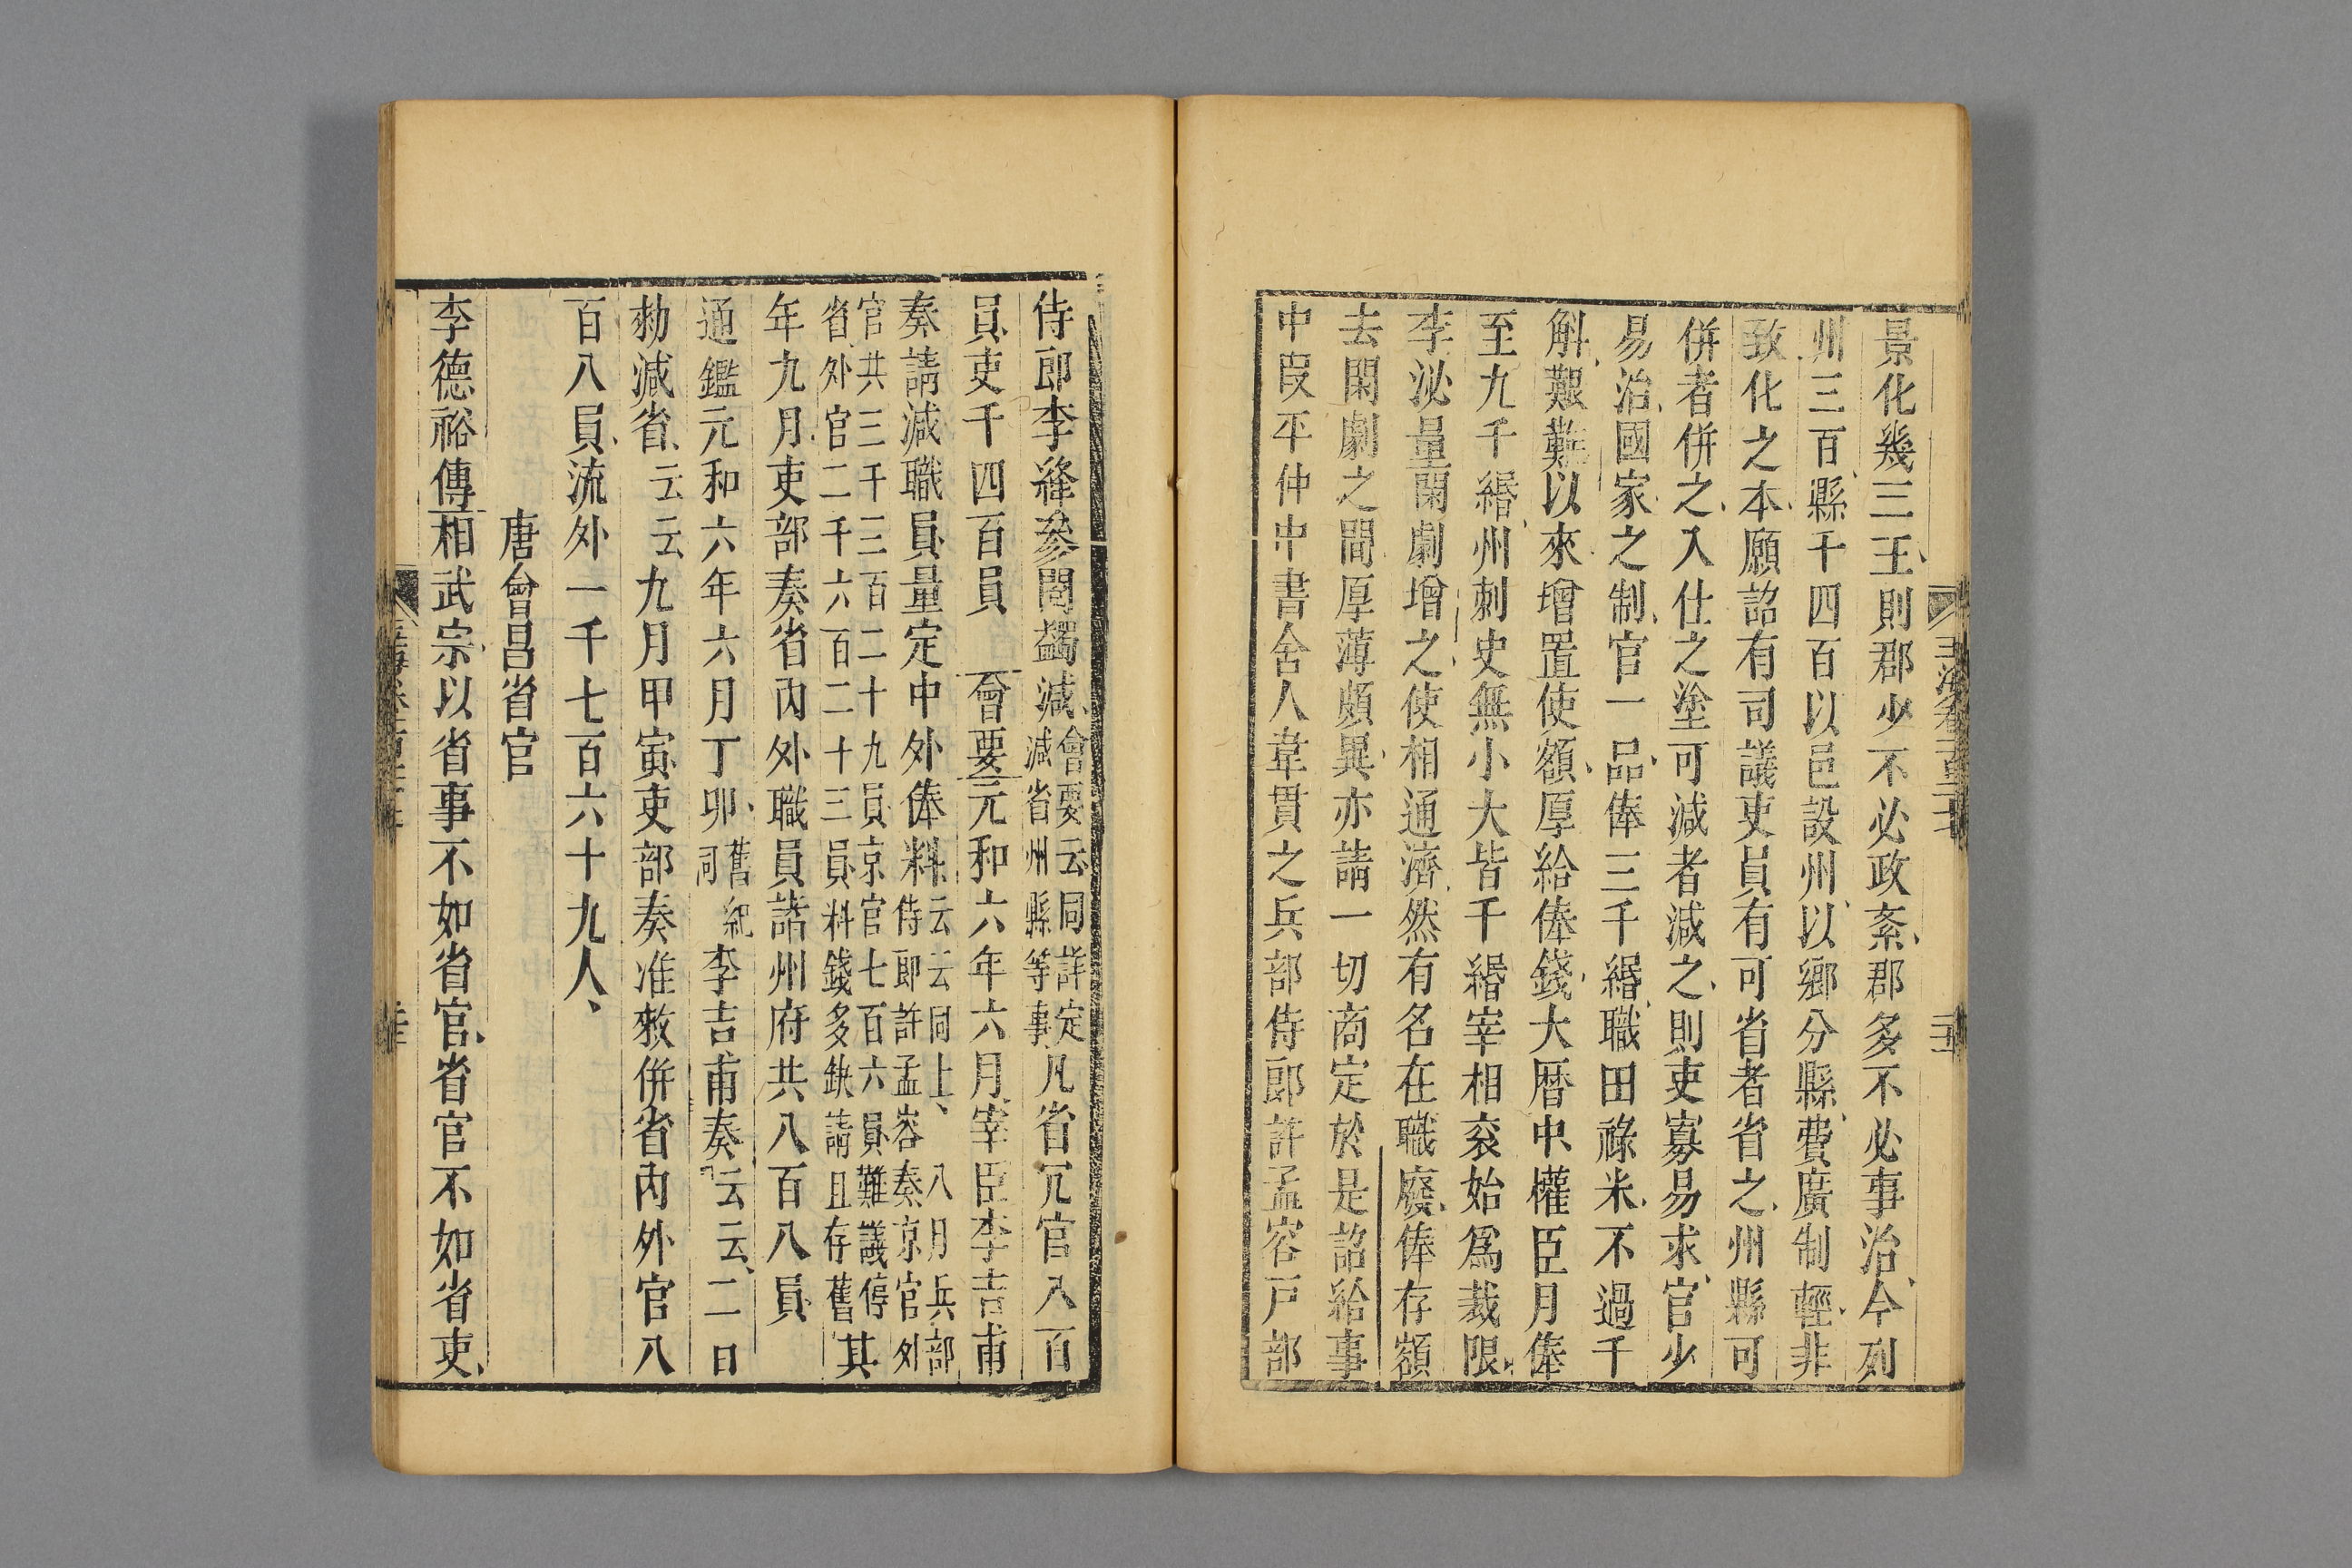 景化幾三王則郡少不必政紊郡多不必事治今列
州三百縣千四百以邑設州以鄉分縣費廣制輕非
致化之本願詔有司議吏員有可省者省之州縣可
併者併之入仕之塗可減者減之則吏寡易求官少
易治國家之制官一品俸三千緡職田祿米不過千
斛艱難以來增置使額厚給俸錢大曆中權臣月俸
至九千緡州刺史無小大皆千緡宰相衮始爲裁限
李泌量閑劇增之使相通濟然有名在職廢俸存額
去閑劇之間厚薄頗異亦請一切商定於是詔給事
中叚平仲中書舍人韋貫之兵部侍郎許孟容戸部
侍郎李絳參閱蠲減會要云同詳定減省州縣等事凡省冗官八百
員吏千四百員 會要元和六年六月宰臣李吉甫
奏請減職員量定中外俸料云云同上八月兵部侍郎許孟容奏京官外
官共三千三百二十九員京官七百六員難議停省外官二千六百二十三員料錢多缺請且存舊其
年九月吏部奏省內外職員諸州府共八百八員
通鑑元和六年六月丁卯舊紀同李吉甫奏云云二日
勑減省云云九月甲寅吏部奏准敕併省內外官八
百八員流外一千七百六十九人
唐會昌省官
李德裕傳相武宗以省事不如省官省官不如省吏